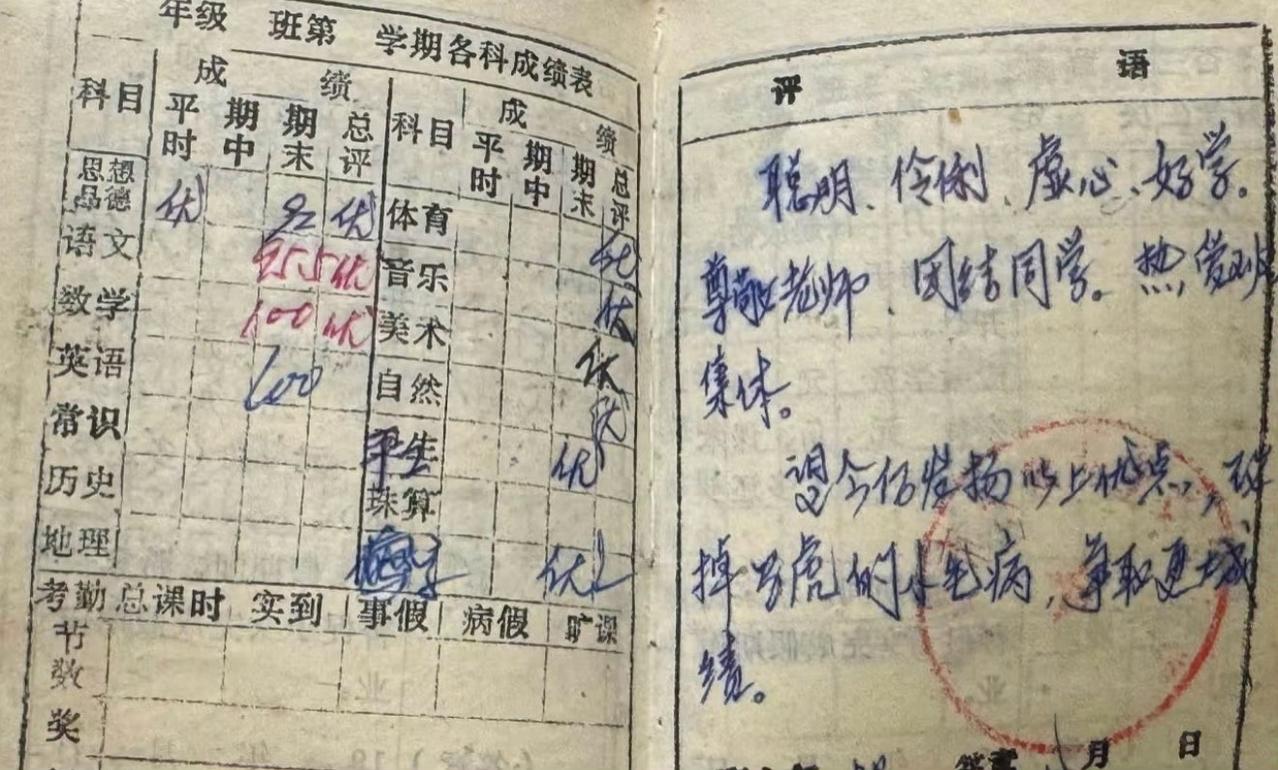 年级 班第 学期各科成绩表
科目 成绩 科目 成绩
平时 期中 期末 总评 平时 期中 期末 总评
思想品德 优 92 优 体育 优
语文 95.5 优 音乐 优
数学 100 优 美术 优
英语 100 自然 优
常识 优
历史 珠算
地理 优
考勤 总课时 实到 事假 病假 旷课
节数
奖
评语
聪明、伶俐、虚心、好学。
尊敬老师、团结同学。热爱班
集体。
望今后发扬以上优点,改
掉马虎的小毛病,争取更大成
绩。
月 日